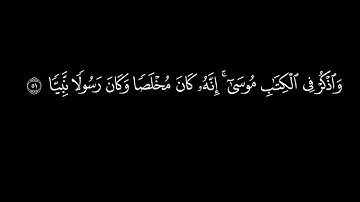 وَٱذْكُرْ فِى ٱلْكِتَٰبِ مُوسَىٰٓ ۚ إِنَّهُۥ كَانَ مُخْلَصًا وَكَانَ رَسُولًا نَّبِيًّا ٥١